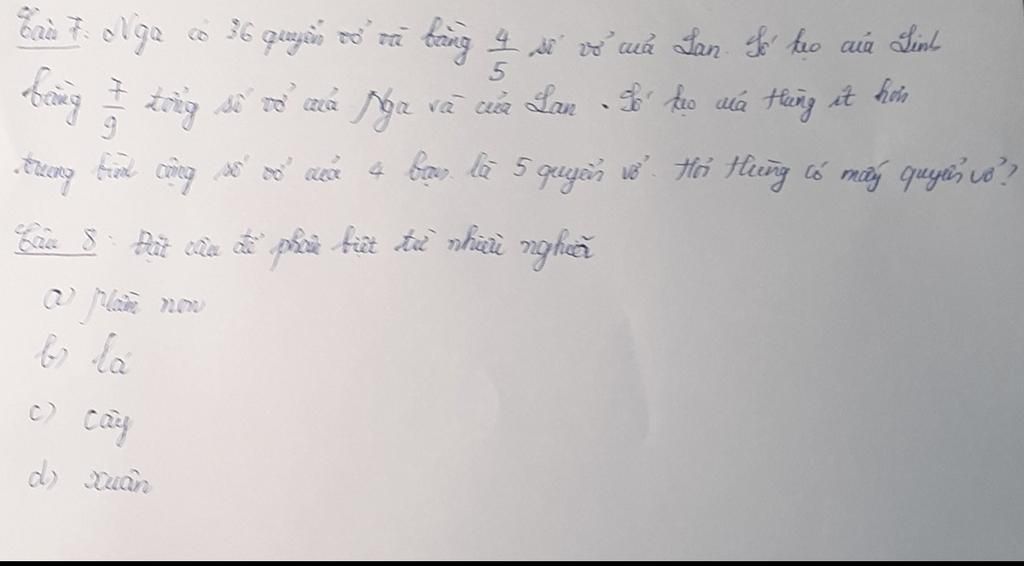 Câu 7: Nga có 36 quyển vở và bằng 4/5 số vở của Lan. Số kẹo của Linh
bằng 7/9 tổng số vở của Nga và của Lan. Số kẹo của Hùng ít hơn
trung bình cộng số vở của 4 bạn là 5 quyển vở. Hỏi Hùng có mấy quyển vở?
Câu 8: Đặt câu để phân biệt từ nhiều nghĩa
a) Mầm non
b) lá
c) cây
d) xuân